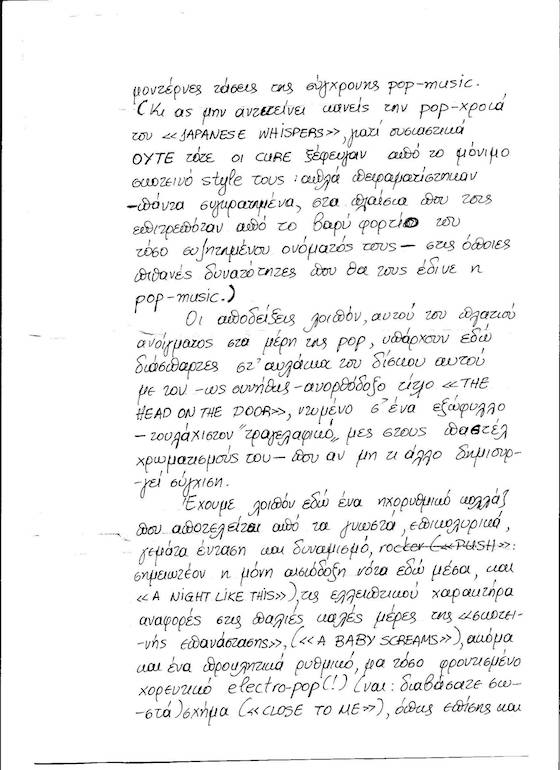 μοντέρνες τάσεις της σύγχρονης pop-music.
(Κι ας μην αντιτείνει κανείς την pop-χροιά
του «JAPANESE WHISPERS», γιατί ουσιαστικά
ΟΥΤΕ τότε οι CURE ξέφευγαν από το μόνιμο
σκοτεινό style τους : απλά πειραματίστηκαν
-πάντα συγκρατημένα, στα πλαίσια που τους
επιτρεπόταν από το βαρύ φορτίο του
τόσο συζητημένου ονόματός τους- στις όποιες
πιθανές δυνατότητες που θα τους έδινε η
pop-music.)
Οι αποδείξεις λοιπόν, αυτού του πλατιού
ανοίγματος στα μέρη της pop, υπάρχουν εδώ
διάσπαρτες στ' αυλάκια του δίσκου αυτού
με τον -ως συνήθως- ανορθόδοξο τίτλο «THE
HEAD ON THE DOOR», ντυμένο σ' ένα εξώφυλλο
-τουλάχιστον "τραγελαφικό", μες στους παστέλ
χρωματισμούς του- που αν μη τι άλλο δημιουρ-
-γεί σύγχιση.
Έχουμε λοιπόν εδώ ένα ηχορυθμικό κολλάζ
που αποτελείται από τα γνωστά, επικολυρικά,
γεμάτα ένταση και δυναμισμό, rocker («PUSH»:
σημειωτέον η μόνη αισιόδοξη νότα εδώ μέσα, και
«A NIGHT LIKE THIS»), τις ελλειπτικού χαρακτήρα
αναφορές στις παλιές καλές μέρες της «σκοτει-
-νής επανάστασης», («A BABY SCREAMS»), ακόμα
και ένα προκλητικά ρυθμικό, μα τόσο φροντισμένο
χορευτικό electro-pop(!) (ναι: διαβάσατε σω-
-στά) σχήμα («CLOSE TO ME»), όπως επίσης και